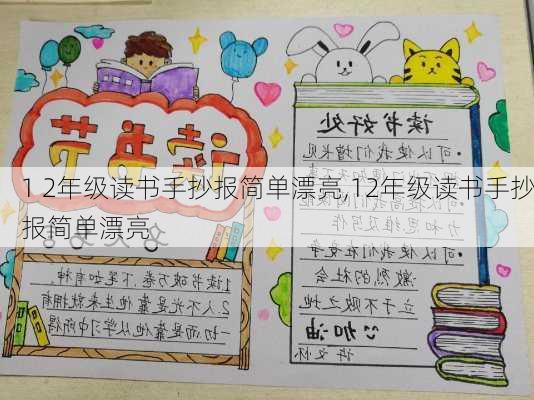 读书节
1 2年级读书手抄报简单漂亮,12年级读书手抄
报简单漂亮
1.读书破万卷,下笔如有神.
2.人不光是靠他生来就拥有
一切,而是靠他从学习中所得
读书好处
·可以使我们增长见
力和思维及写作
·可以使我们在竞争
激烈的社会
立于不败之地
加油